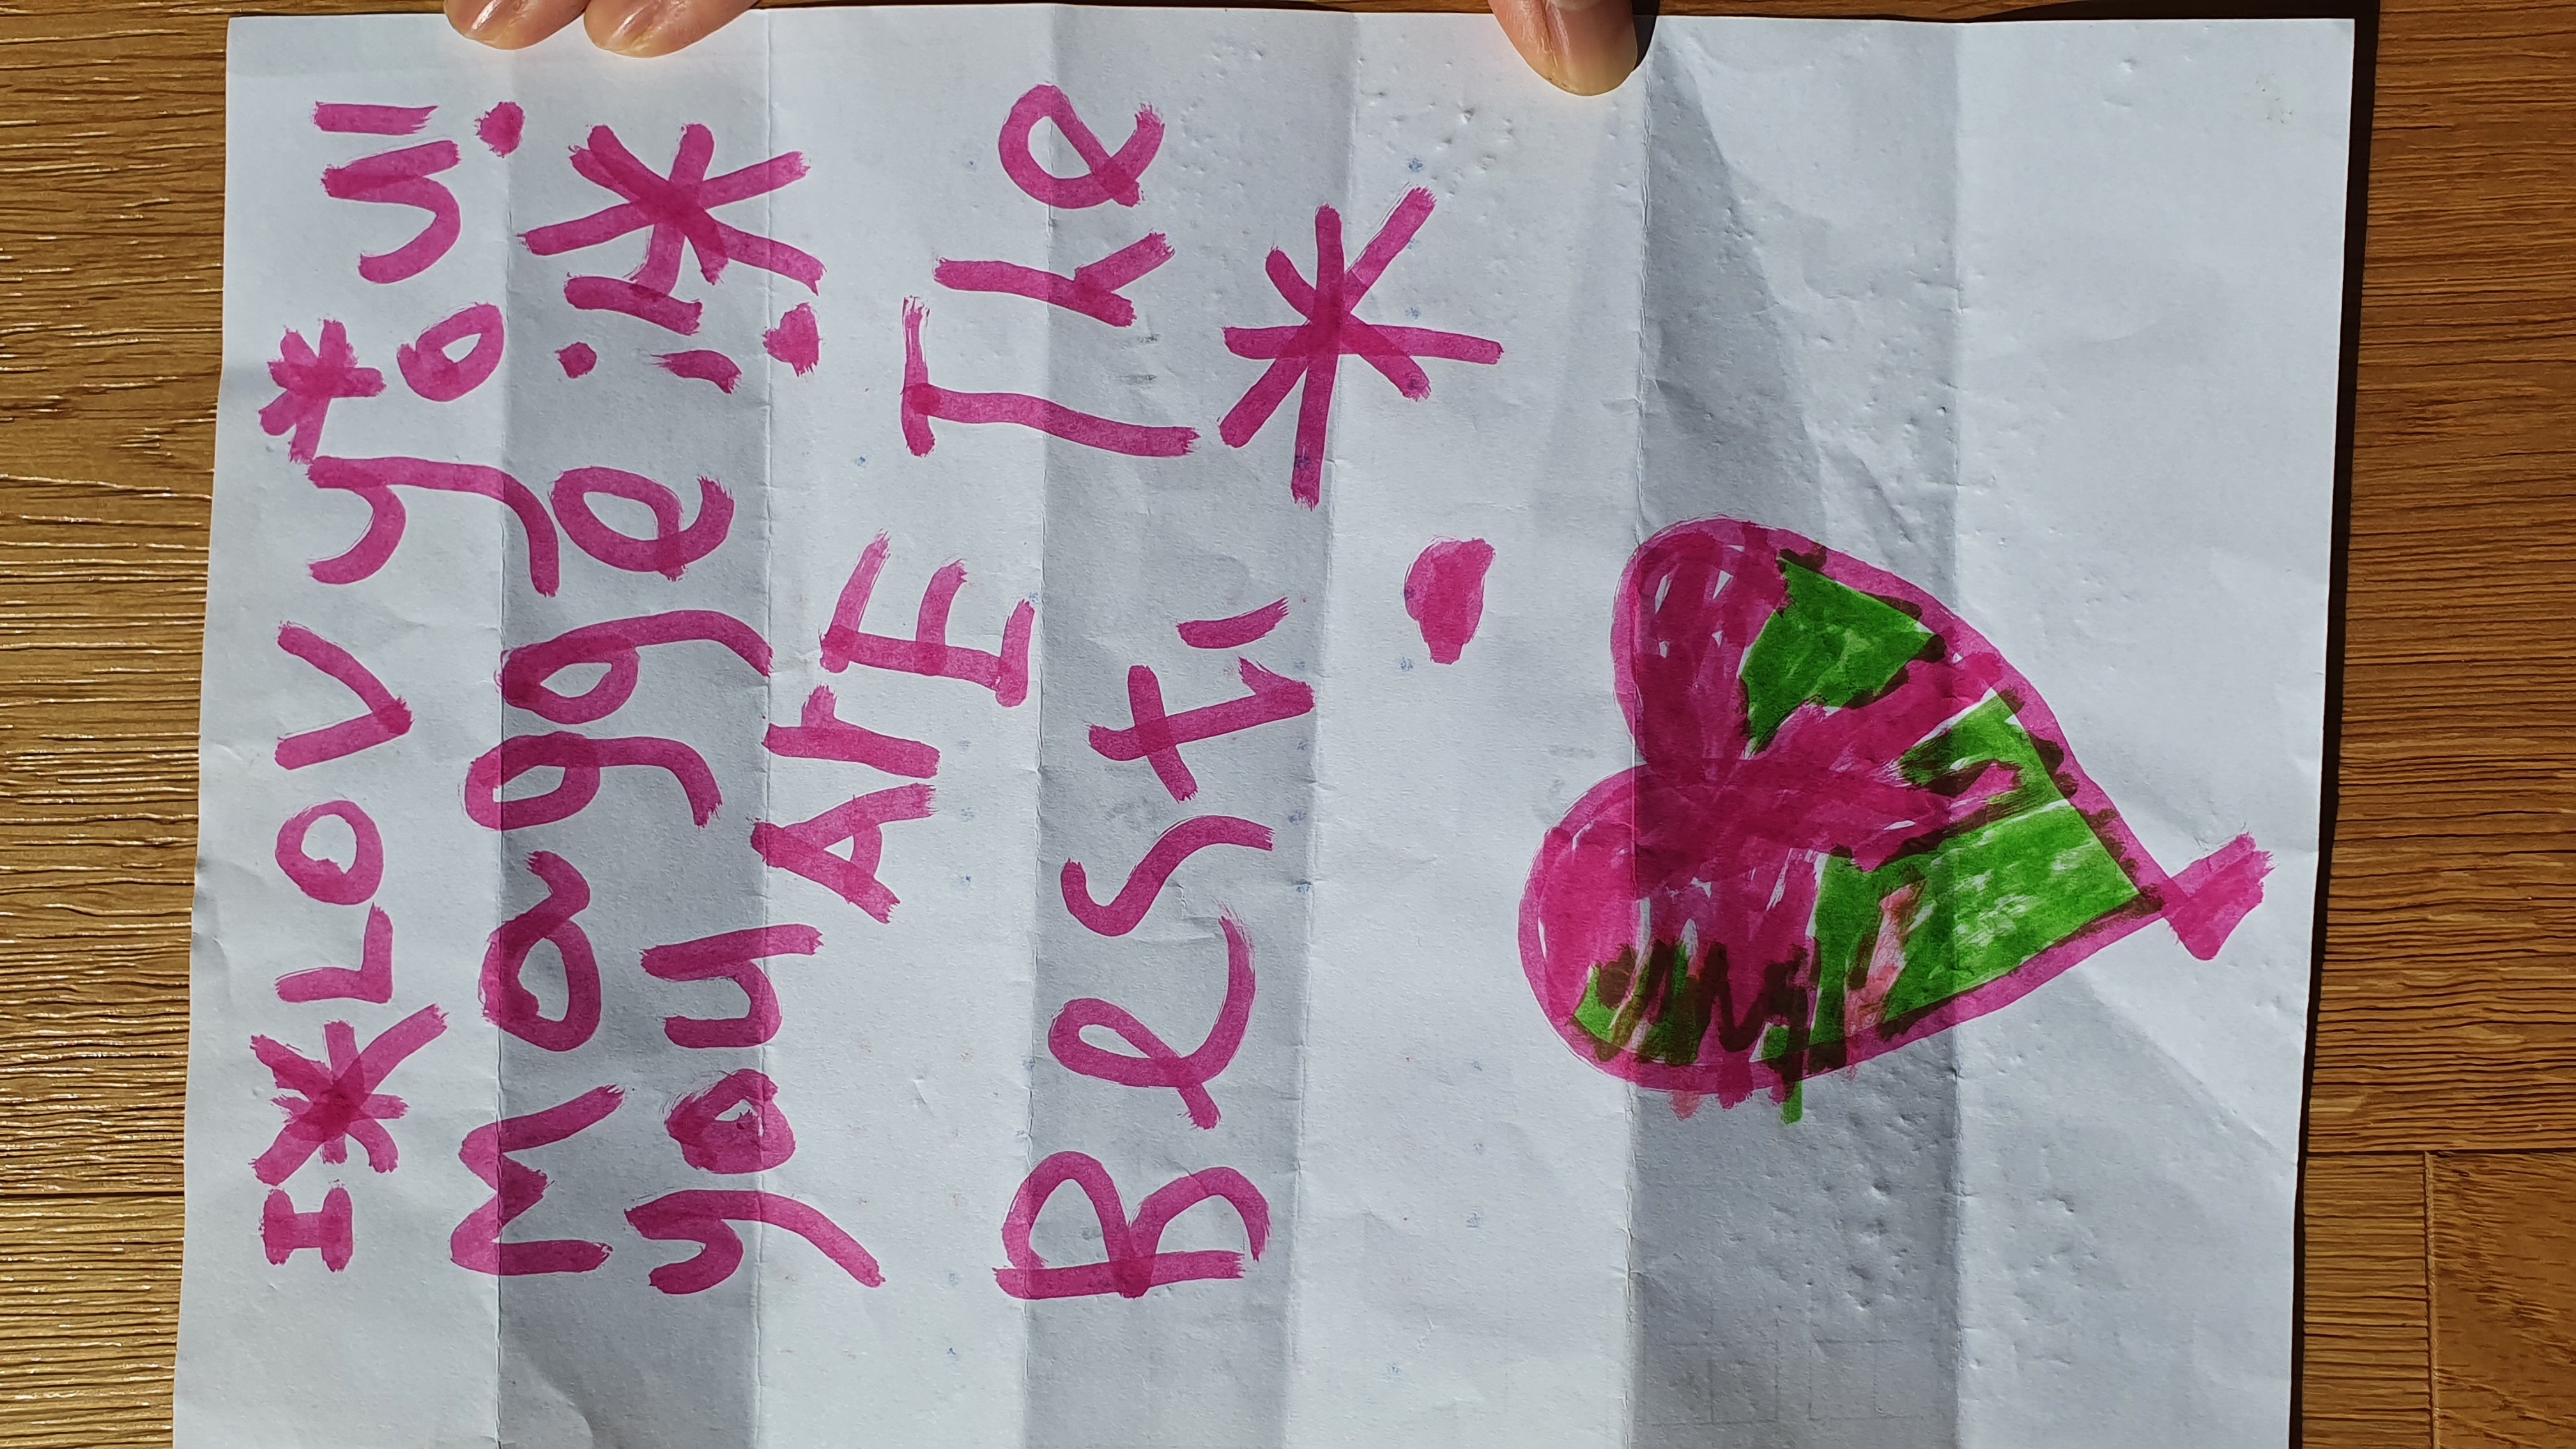 I*LOV y*ou!
Maggei!*
you ArE The
Best! *